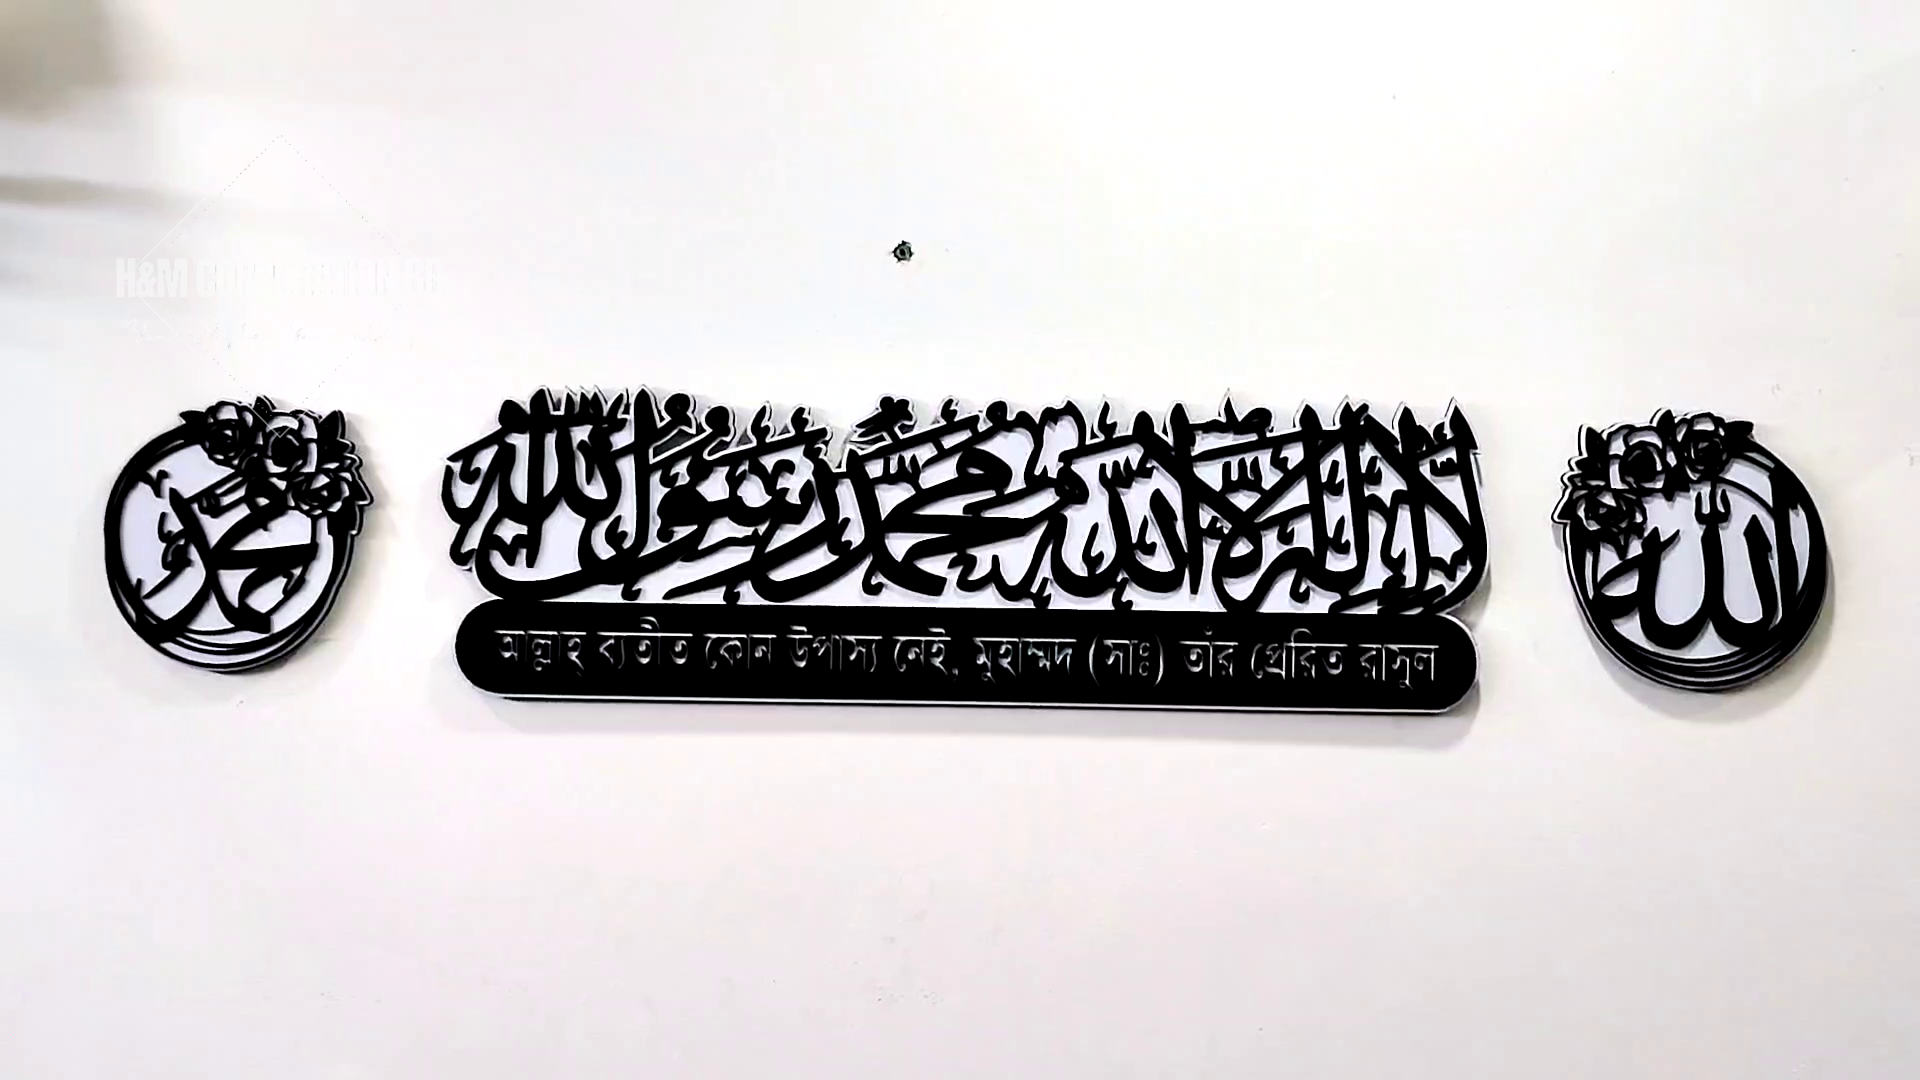 محمد
لا إله إلا الله محمد رسول الله
الله
আল্লাহ ব্যতীত কোন উপাস্য নেই, মুহাম্মদ (সাঃ) তাঁর প্রেরিত রাসুল
H&M